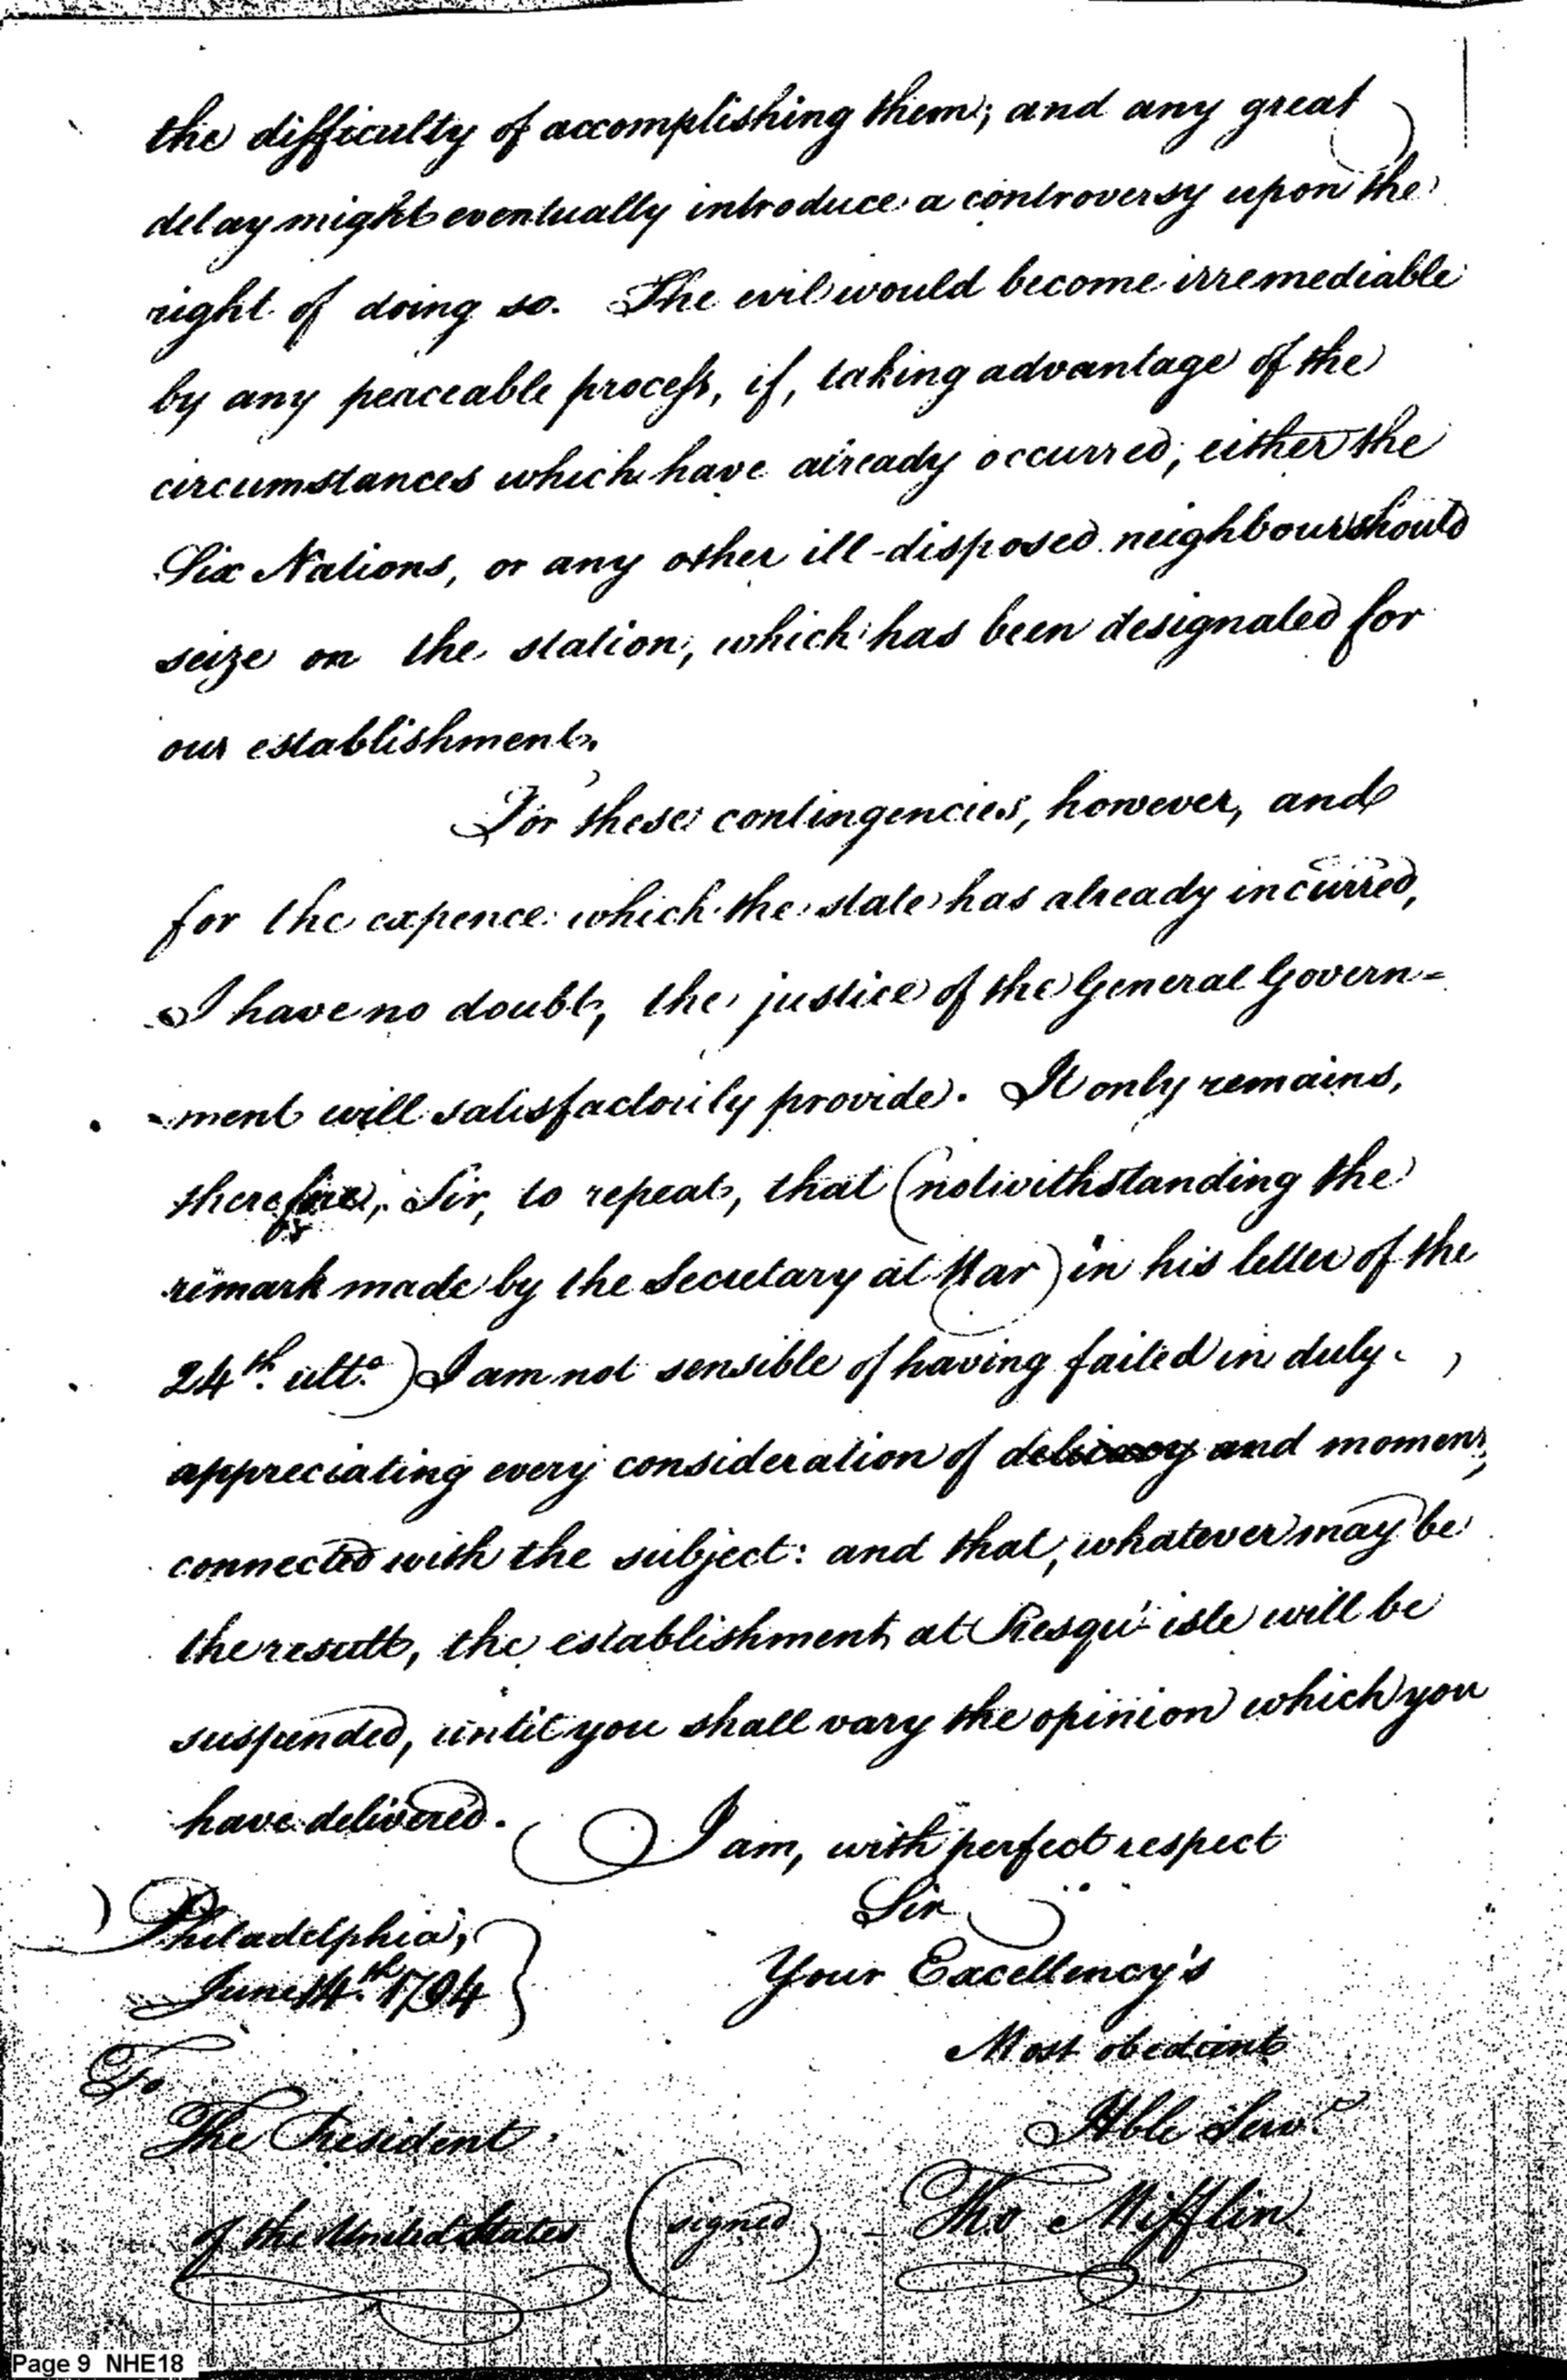 the difficulty of accomplishing them; and any great
delay might eventually introduce a controversy upon the
right of doing so. The evil would become irremediable
by any peaceable process, if, taking advantage of the
circumstances which have already occurred, either the
Six Nations, or any other ill-disposed neighbour should
seize on the station, which has been designated for
our establishment.
For these contingencies, however, and
for the expence which the state has already incurred,
I have no doubt, the justice of the General Govern=
-ment will satisfactorily provide. It only remains,
therefore, Sir, to repeat, that (notwithstanding the
remark made by the Secretary at War) in his letter of the
24th. ulto.) I am not sensible of having failed in duly
appreciating every consideration of delicacy and moment,
connected with the subject: and that, whatever may be
the result, the establishment at Presqu'-isle will be
suspended, until you shall vary the opinion which you
have delivered.
I am, with perfect respect
Sir
Philadelphia,
June 14th. 1794
Your Excellency's
Most obedient
To
Hble Servt.
The President
of the United States
(signed) Tho Mifflin
Page 9 NHE18